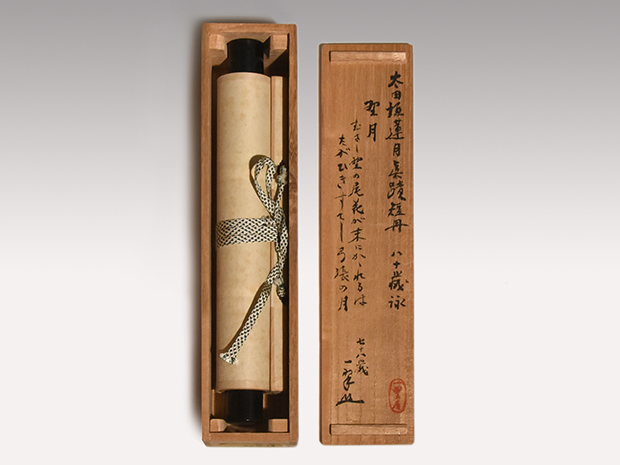 太田垣蓮月眞蹟短冊 八十歳詠
埜月
むさし埜の尾花が末にかゝれるは
たがひきすてし弓張の月
七十八歳